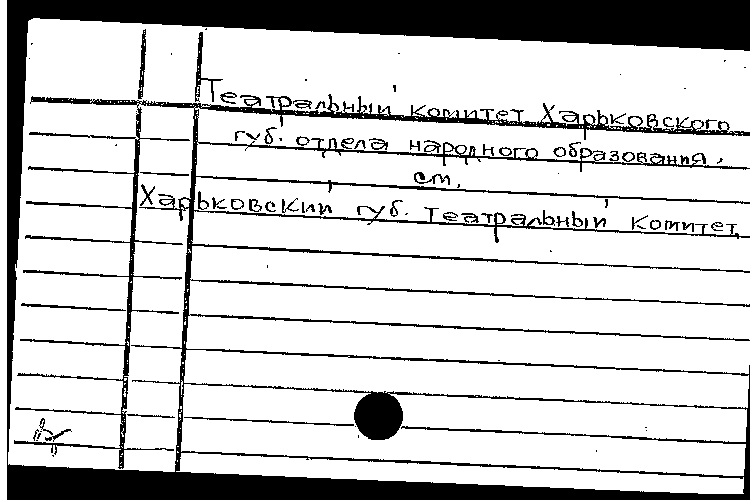 Театральный комитет Харьковского
губ. отдела народного образования.
см.
Харьковский губ. театральный комитет